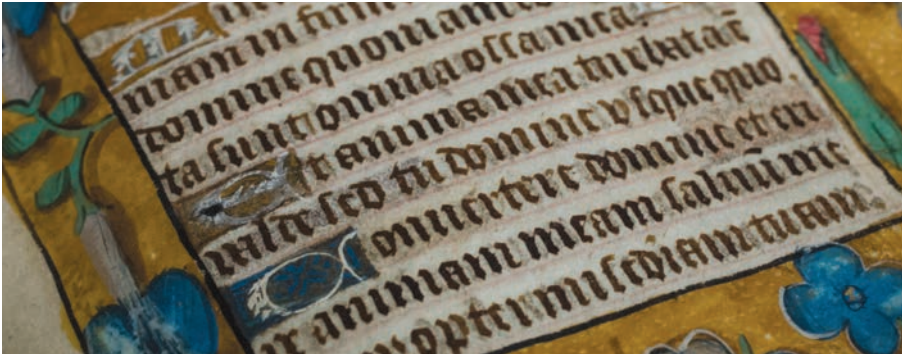 niam infirm
domine quoniam
ta sunt omnia ossa mea.
Et anima mea turbata est
ualde sed tu domine vsquequo.
Conuertere domine et eri
animam meam saluū me
propter misēdiam tuam.